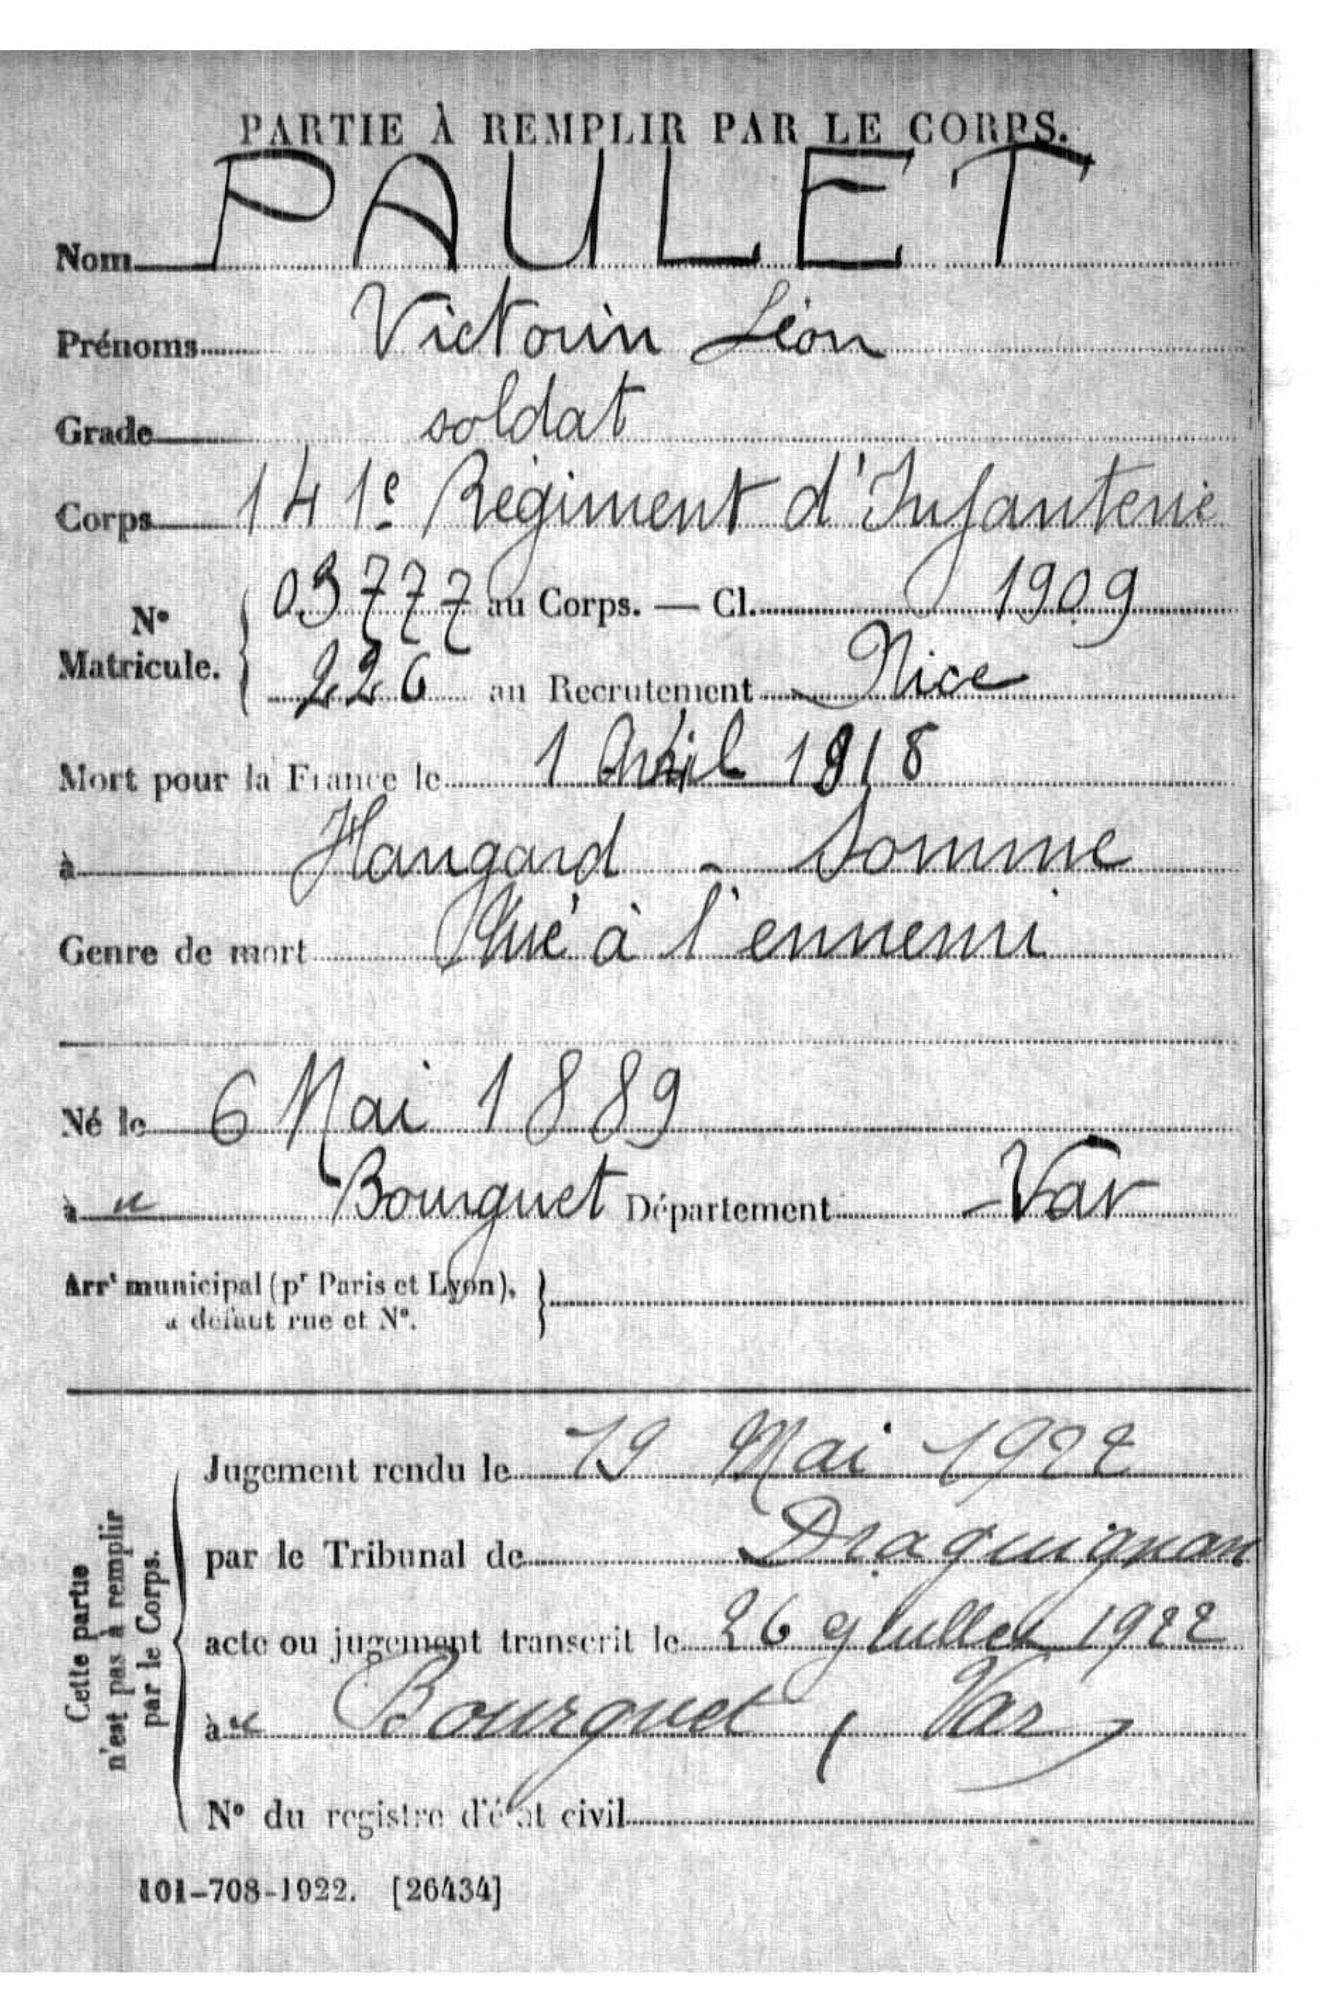 PARTIE À REMPLIR PAR LE CORPS.
Nom PAULET
Prénoms Victorin Léon
Grade soldat
Corps 141e Régiment d'Infanterie
N° Matricule. { 03777 au Corps. — Cl. 1909
226 au Recrutement Nice
Mort pour la France le 1 Avril 1918
à Hangard - Somme
Genre de mort Tué à l'ennemi
Né le 6 Mai 1889
à u Bourguet Département Var
Arrt municipal (pr Paris et Lyon),
à défaut rue et N°. }
Cette partie
n'est pas à remplir
par le Corps.
Jugement rendu le 19 Mai 1922
par le Tribunal de Draguignan
acte ou jugement transcrit le 26 Juillet 1922
à u Bourguet, Var
N° du registre d'état civil
101-708-1922. [26434]